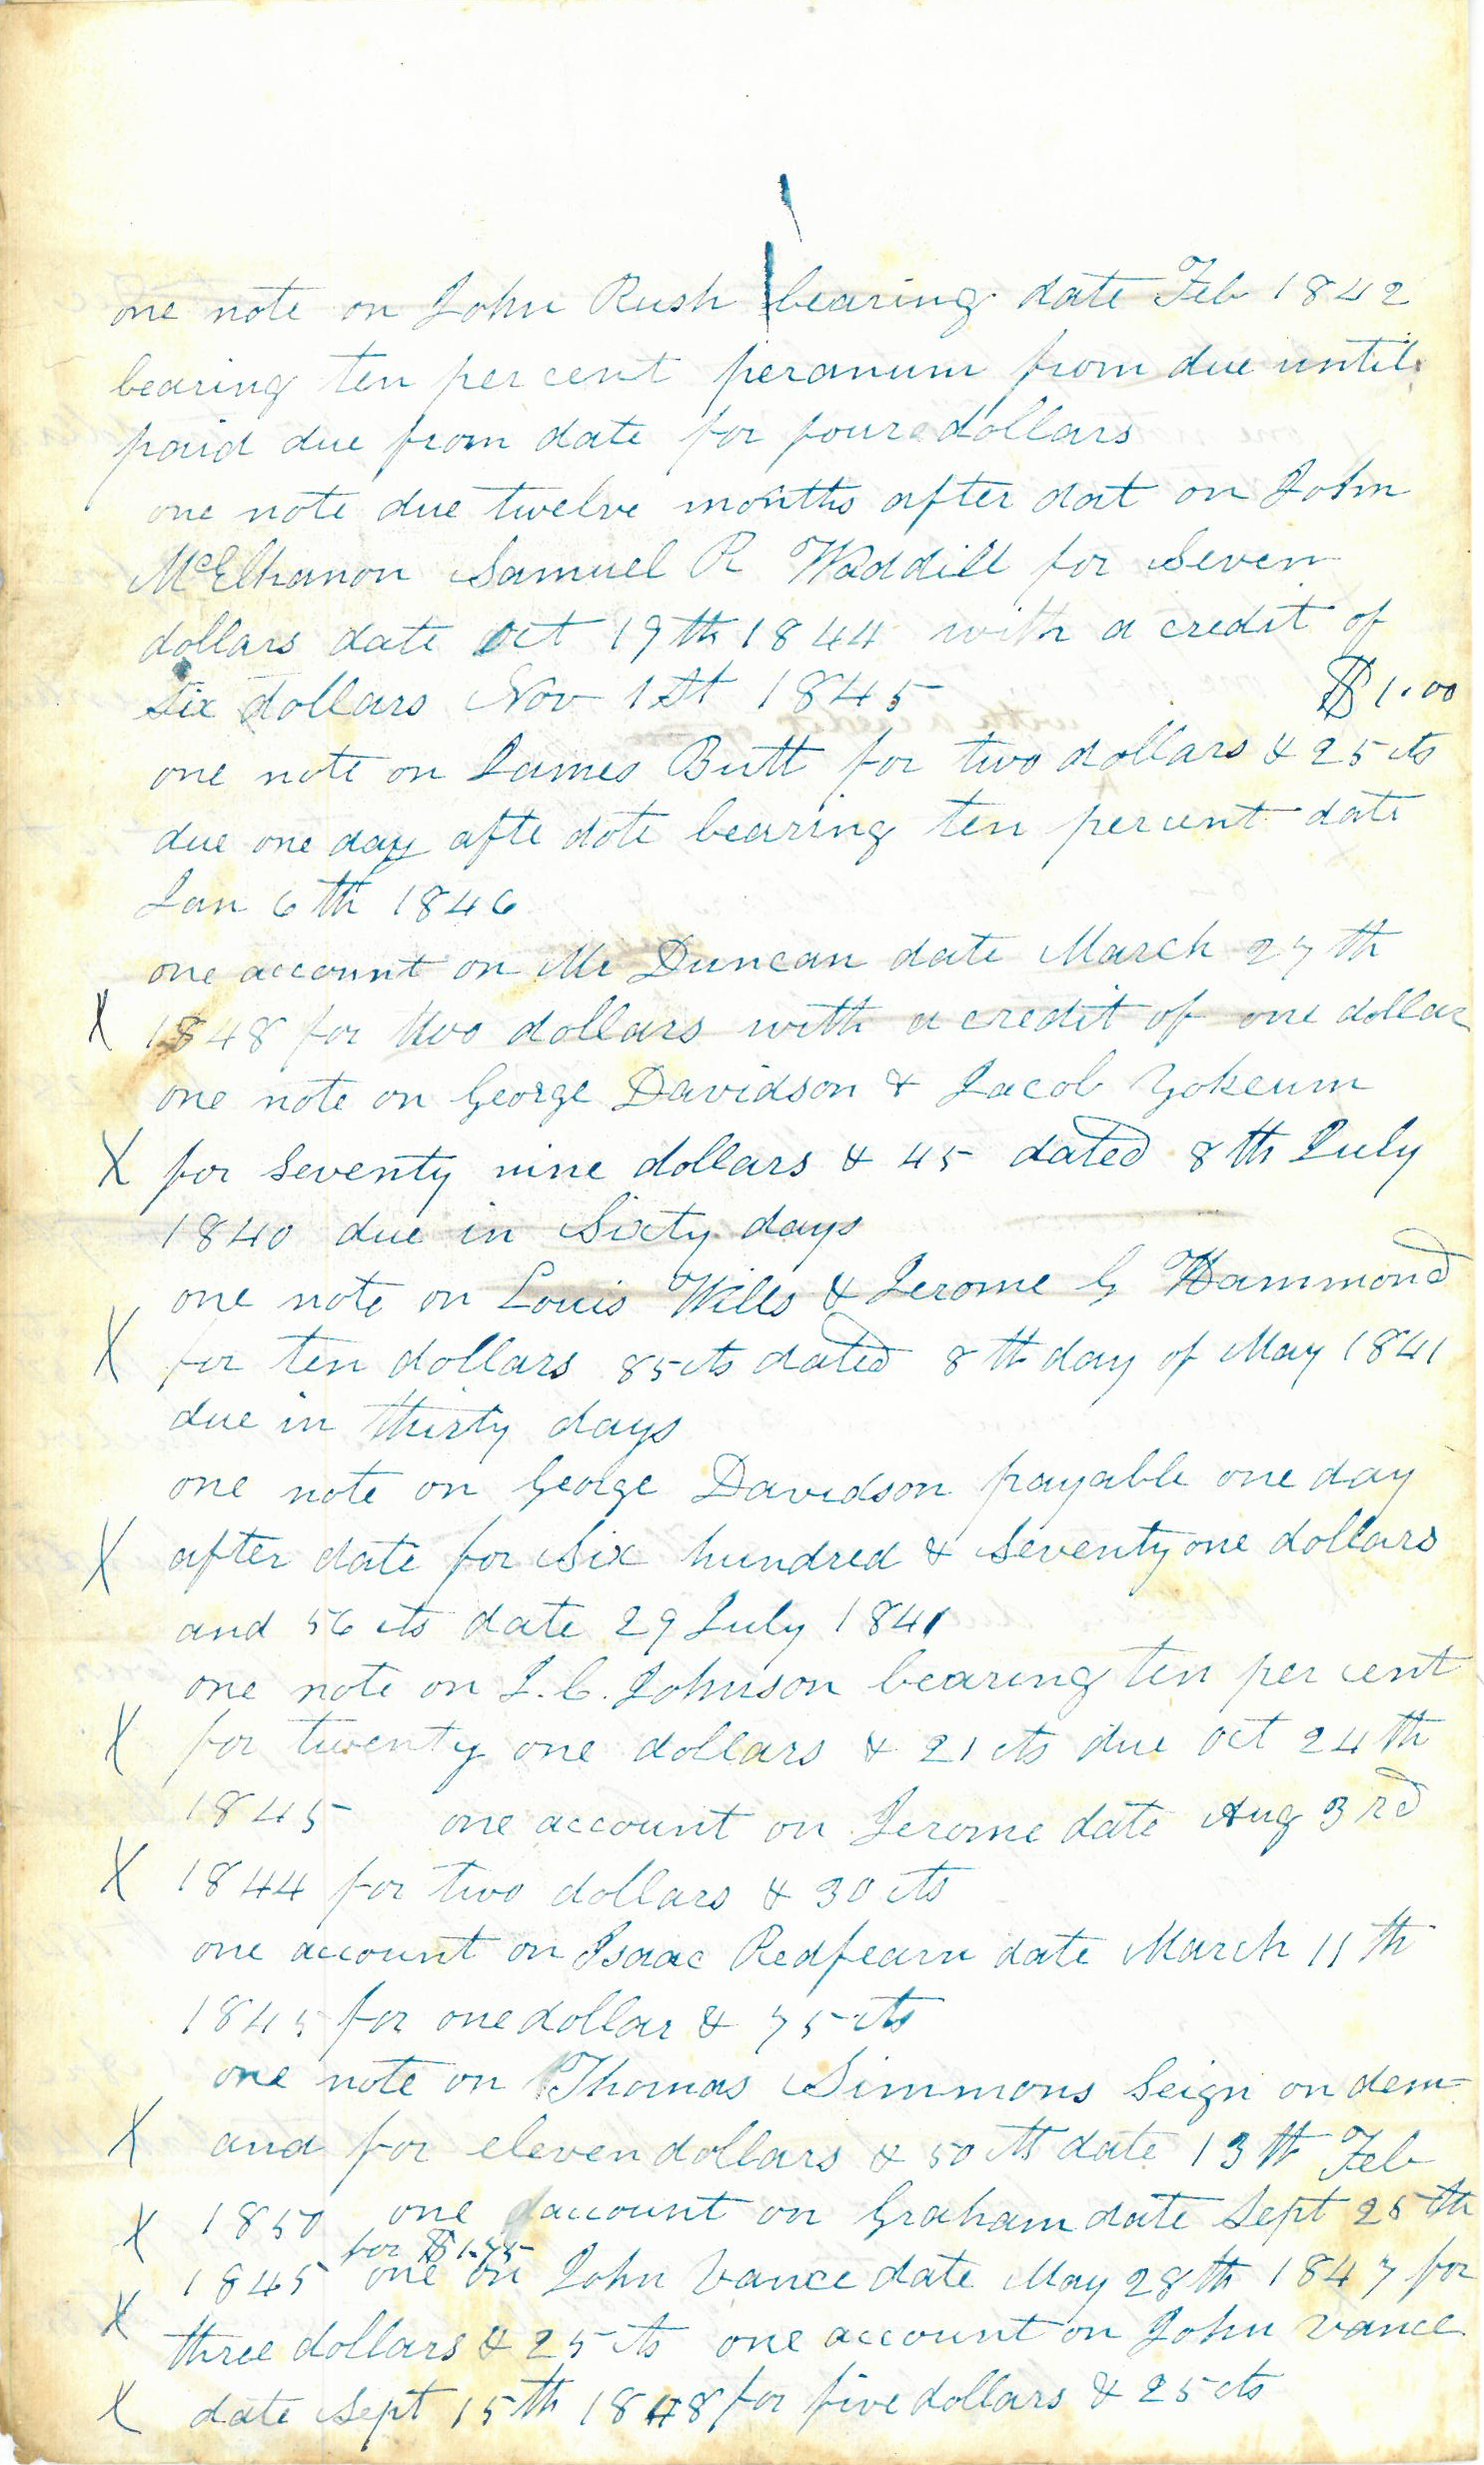 one note on John Rush bearing date Feb 1842
bearing ten per cent peranum from due until
paid due from date for foure dollars
one note due twelve months after dat on John
McElhanon Samuel R Waddill for Seven
dollars date Oct 19th 1844 with a credit of
six dollars Nov 1st 1845 $1.00
one note on James Butt for two dollars & 25 cts
due one day afte date bearing ten per cent date
Jan 6th 1846
one account on Mr Duncan date March 27th
X 1848 for two dollars with a credit of one dollar
one note on George Davidson & Jacob Yokeum
X for Seventy nine dollars & 45 dated 8th July
1840 due in Sixty days
one note on Louis Wills & Jerome G Hammond
X for ten dollars 85 cts dated 8th day of May 1841
due in thirty days
one note on George Davidson payable one day
X after date for Six hundred & Seventy one dollars
and 56 cts date 29 July 1841
one note on J. C. Johnson bearing ten per cent
X for twenty one dollars & 21 cts due Oct 24th
1845 one account on Jerome date Aug 3rd
X 1844 for two dollars & 30 cts
one account on Isaac Redfearn date March 11th
1845 for one dollar & 75 cts
one note on Thomas Simmons Seign on dem=
X and for eleven dollars & 50 cts date 13th Feb
X 1850 one account on Graham date Sept 25th
for $1.75
1845 one on John Vance date May 28th 1847 for
X three dollars & 25 cts one account on John Vance
X date Sept 15th 1848 for five dollars & 25 cts